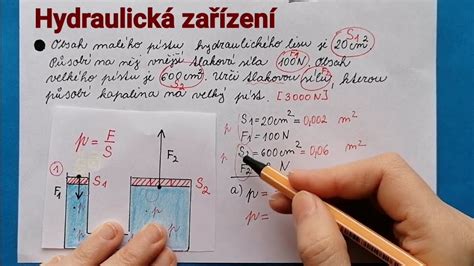 Hydraulická zařízení
Obsah malého pístu hydraulického lisu je 20 cm² S₁
Působí na něj vnější tlaková síla 100N F₁. Obsah
velkého pístu je 600 cm² S₂. Urči tlakovou sílu F₂, kterou
působí kapalina na velký píst. [3000N]
p S₁ = 20 cm² = 0,002 m²
F₁ = 100 N
p S₂ = 600 cm² = 0,06 m²
F₂ N
a) p =
p =
p = F/S
1
F₁ S₁
F₂
S₂
p p